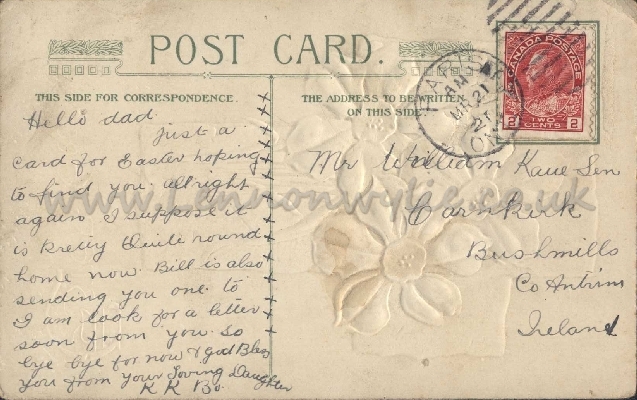 POST CARD.
THIS SIDE FOR CORRESPONDENCE.
THE ADDRESS TO BE WRITTEN
ON THIS SIDE
CANADA POSTAGE
2 TWO CENTS 2
AM
21
27
ON
Hello dad.
Just a
card for Easter hoping
to find you allright
again I suppose it
is pretty Quite round
home now. Bill is also
sending you one to
I am look for a letter
soon from you. So
bye bye for now & god Bless
you from your loving Daughter
K K Bo.
Mr William Kane Sen
Carnkirk
Bushmills
Co Antrim
Ireland
www.Lennonwylie.co.uk